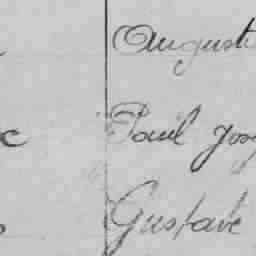 August
c Paul Jos
Gustave